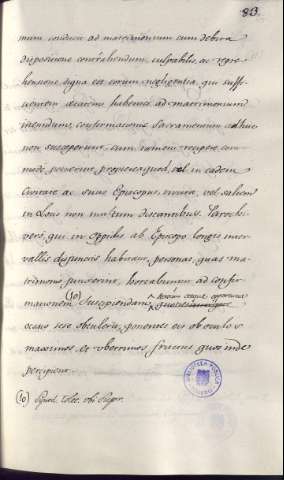 83.
mum conducit ad matrimonium cum debita
dispositione contrahendum, culpabilis, ac repre-
hensione digna est eorum negligentia, qui suffi-
cientem aetatem habentes ad matrimonium
ineundum, confirmationis Sacramentum adhuc
non susceperunt, cum tamen recipere com-
mode potuerint, propterea quod vel in eadem
Civitate ac suus Episcopus, vel saltem
in locis non multum distantibus. Parochi
vero, qui in oppidis ab Episcopo longis inter-
vallis disjunctis habitant, personas, quas ma-
trimonio junxerint, hortabuntur ad confir-
mationem (10) suscipiendam,
casus sese obtulerit, ponentes ob oculos
maximos, et uberrimos fructus quos inde
percipient.
(10) Synod. Tolet. ubi supr.
BIBLIOTECA PUBLICA